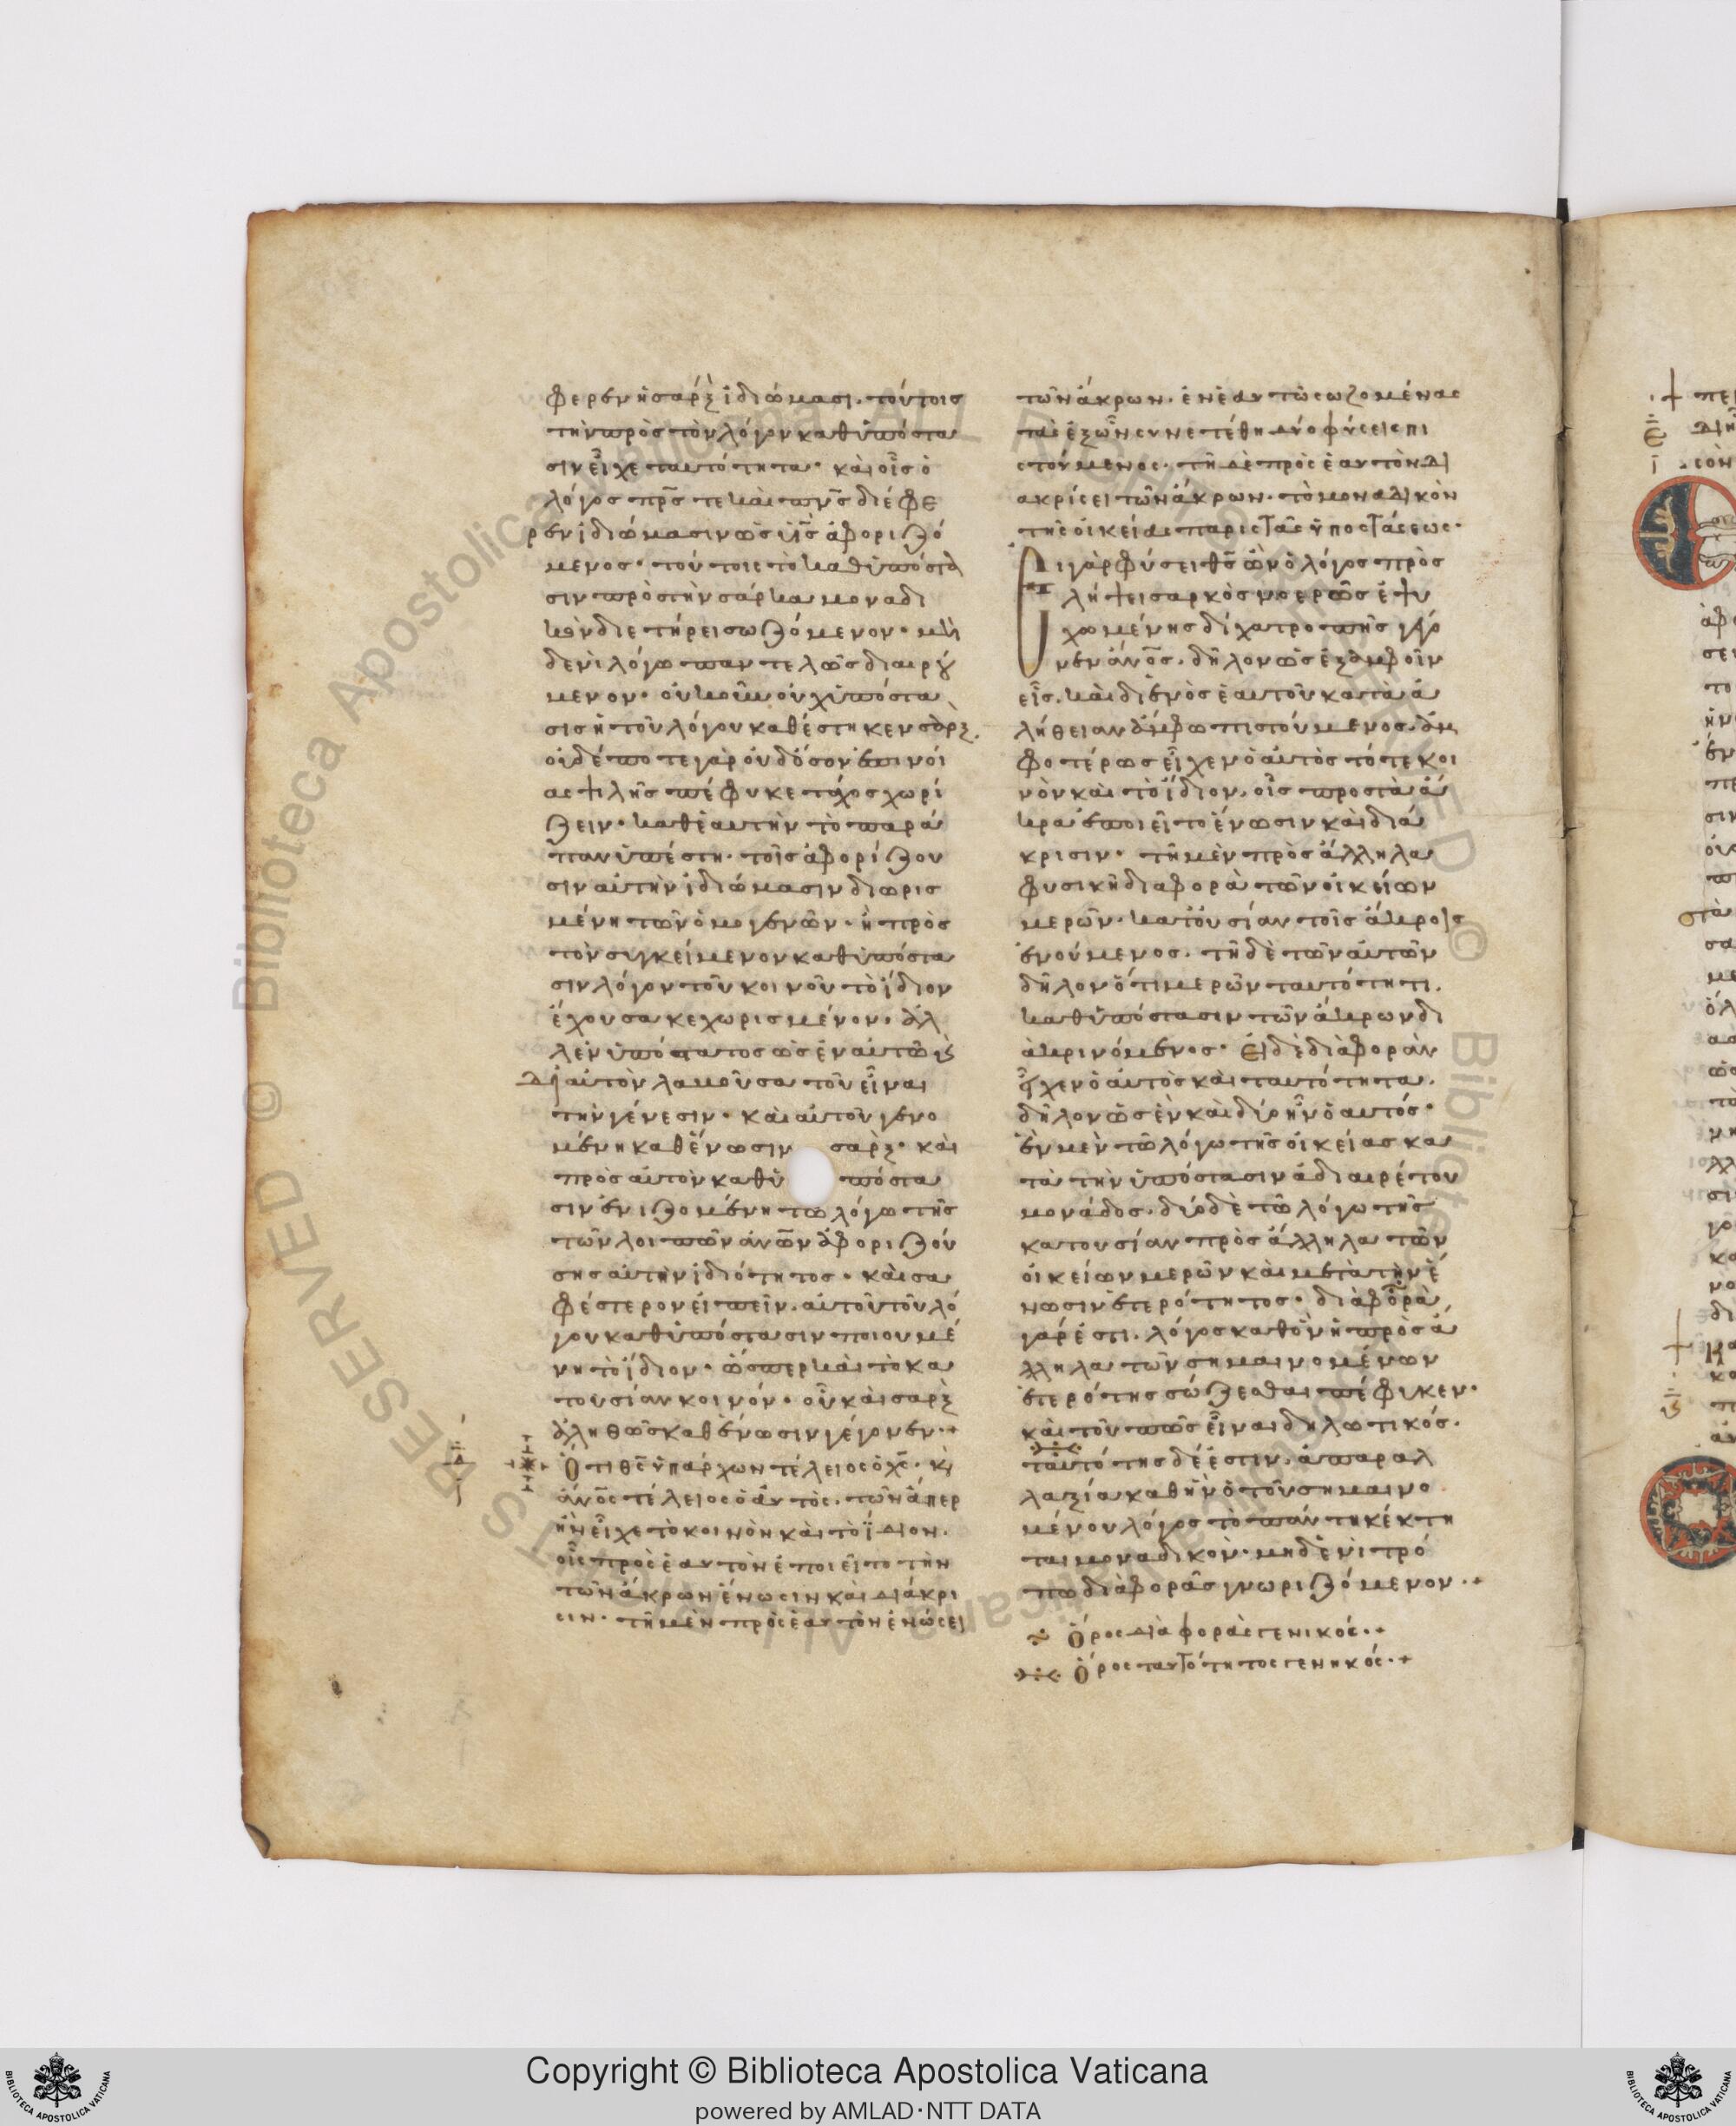 φερεν ἡ σάρξ ἰδιώμασι. τούτοις
τὴν πρὸς τὸν λόγον καθ' ὑπόστα
σιν εἶχε ταυτότητα· καὶ οἷς ὁ
λόγος πρ̅ς τε καὶ πν̅ς διέφε
ρεν ἰδιώμασιν ὡς υἱ̅ς ἀφοριζό
μενος· τούτοις τὸ καθ' ὑπόστα
σιν πρὸς τὴν σάρκα μοναδι
κὸν διετήρει σωζόμενον· μη
δενὶ λόγω παντελῶς διαιρού
μενον· οὐκοῦν οὐχ ὑπόστα
σις ἡ τοῦ λόγου καθέστηκεν σάρξ.
οὐδέποτε γὰρ οὐδ' ὅσον ἐπινοί
ας ψιλῆς πέφυκε τάχος χωρί
ζειν· καθ' ἑαυτὴν τὸ παρά
παν ὑπέστη. τοῖς ἀφορίζου
σιν αὐτὴν ἰδιώμασιν διωρισ
μένη τῶν ὁμογενῶν· ἢ πρὸς
τὸν συγκείμενον καθ' ὑπόστα
σιν λόγον τοῦ κοινοῦ τὸ ἴδιον
ἔχουσα κεχωρισμένον· ἀλ
λ' ἐνυπόστατος ὡς ἐν αὐτῶ κ̀
δι' αὐτὸν λαβοῦσα τοῦ εἶναι
τὴν γένεσιν· καὶ αὐτοῦ γενο
μένη καθ' ἕνωσιν σάρξ· καὶ
πρὸς αὐτὸν καθ' ὑπόστα
σιν ἑνιζομένη τῶ λόγω τῆς
τῶν λοιπῶν ἀν̅ων ἀφοριζού
σης αὐτὴν ἰδιότητος· καὶ σα
φέστερον εἰπεῖν. αὐτοῦ τοῦ λό
γου καθ' ὑπόστασιν ποιουμέ
νη τὸ ἴδιον· ὥσπερ καὶ τὸ κα
τουσίαν κοινόν· οὗ καὶ σὰρξ
ἀληθῶς καθ' ἕνωσιν γέγονεν·+
Δ Ὅτι θε̅ς ὑπάρχων τέλειος ὁ χ̅ς· κ̀
ἀν̅ος τέλειος ὁ αὐτὸς. τῶν ἅπερ
ἦν εἶχε τὸ κοινὸν καὶ τὸ ἴδιον.
οἷς πρὸς ἑαυτὸν ἐποιεῖτο τὴν
τῶν ἄκρων ἕνωσιν καὶ διάκρι
σιν· τῆ μὲν πρὸς ἑαυτὸν ἑνώσει
τῶν ἄκρων. ἐν ἑαυτῶ σωζομένας
τὰς ἐξ ὧν συνετέθη δύο φύσεις πι
στούμενος· τῆ δὲ πρὸς ἑαυτὸν δι
ακρίσει τῶν ἄκρων. τὸ μοναδικὸν
τῆς οἰκείας παριστᾶς ὑποστάσεως·
Εἰ γὰρ φύσει θ̅ς ὢν ὁ λόγος πρὸς
λήψει σαρκὸς νοερῶς ἐψυ
χωμένης δίχα τροπῆς γέγο
νεν ἀν̅ος. δῆλον ὡς ἐξ ἀμφοῖν
εἷς. καὶ δι' ἑνὸς ἑαυτοῦ κατα ἀ
λήθειαν ἄμφω πιστούμενος. ἀμ
φοτέρως εἶχεν ὁ αὐτὸς τό τε κοι
νὸν καὶ τὸ ἴδιον. οἷς πρὸς τὰ ἄ
κρα ἐποιεῖτο ἕνωσιν καὶ διά
κρισιν· τῆ μὲν πρὸς ἄλληλα
φυσικῆ διαφορὰ τῶν οἰκείων
μερῶν. κατ' οὐσίαν τοῖς ἄκροις
ἑνούμενος. τῆ δὲ τῶν αὐτῶν
δῆλον ὅτι μερῶν ταυτότητι.
καθ' ὑπόστασιν τῶν ἄκρων δι
ακρινόμενος· Εἰ δὲ διαφορὰν
εἶχεν ὁ αὐτὸς καὶ ταυτότητα.
δῆλον ὡς ἓν καὶ δύο ἦν ὁ αυτός·
ἓν μὲν τῶ λόγω τῆς οἰκείας κα
τὰ τὴν ὑπόστασιν ἀδιαιρέτου
μονάδος. δύο δὲ τῶ λόγω τῆς
κατουσίαν πρὸς ἄλληλα τῶν
οἰκείων μερῶν καὶ μετὰ τὴν ἕ
νωσιν ἑτερότητος· διαφορὰ
γάρ ἐστι. λόγος καθ' ὃν ἡ πρὸς ἄ
λληλα τῶν σημαινομένων
ἑτερότης σώζεσθαι πέφυκεν·
καὶ τοῦ πῶς εἶναι δηλωτικός.
ταυτότης δέ ἐστιν. ἀπαραλ
λαξία καθ' ἣν ὁ τοῦ σημαινο
μένου λόγος τὸ πάντη κέκτη
ται μοναδικὸν· μηδενὶ τρό
πω διαφορᾶς γνωριζόμενον·+
Ὅρος διαφορᾶς γενικός·+
Ὅρος ταυτότητος γενηκός·+
Copyright © Biblioteca Apostolica Vaticana
powered by AMLAD·NTT DATA